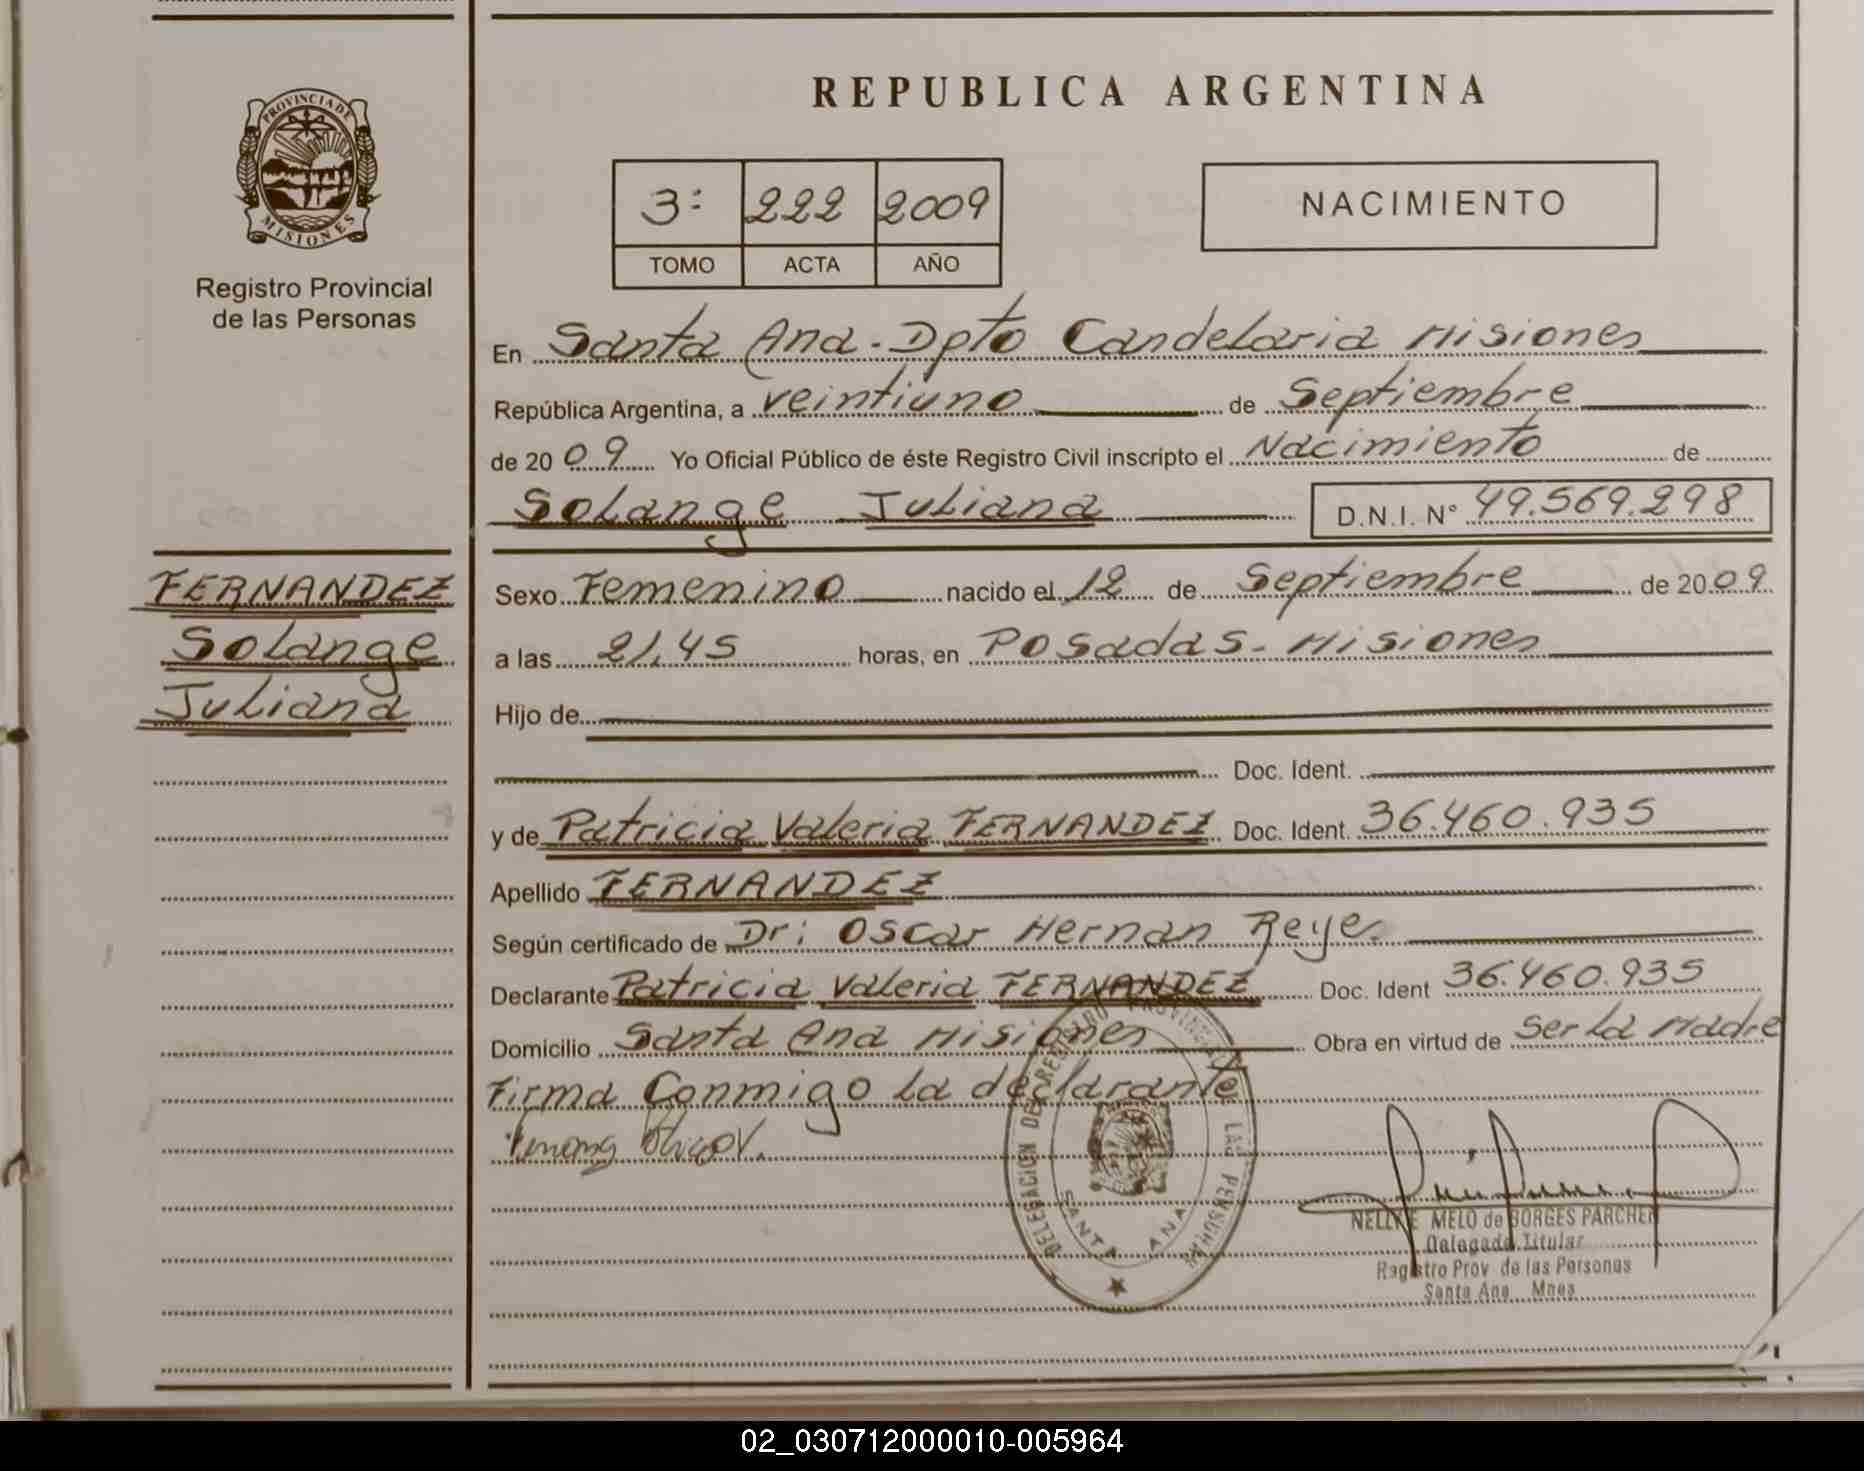 REPUBLICA ARGENTINA
PROVINCIA DE MISIONES
Registro Provincial
de las Personas
3: 222 2009
TOMO ACTA AÑO
NACIMIENTO
En Santa Ana - Dpto Candelaria Misiones
República Argentina, a veintiuno de Septiembre
de 2009 Yo Oficial Público de éste Registro Civil inscripto el Nacimiento de
Solange Juliana D.N.I. N° 49.569.298
FERNANDEZ
Solange
Juliana
Sexo Femenino nacido el 12 de Septiembre de 2009
a las 21,45 horas, en Posadas - Misiones
Hijo de
Doc. Ident.
y de Patricia Valeria FERNANDEZ Doc. Ident. 36.460.935
Apellido FERNANDEZ
Según certificado de Dr: Oscar Hernan Reyes
Declarante Patricia Valeria FERNANDEZ Doc. Ident 36.460.935
Domicilio Santa Ana Misiones Obra en virtud de Ser la Madre
Firma Conmigo la declarante
DELEGACION DEL REGISTRO PROVINCIAL DE LAS PERSONAS
SANTA ANA
NELLY E MELO de BORGES PARCHEN
Delegada Titular
Registro Prov de las Personas
Santa Ana Mnes
02_030712000010-005964